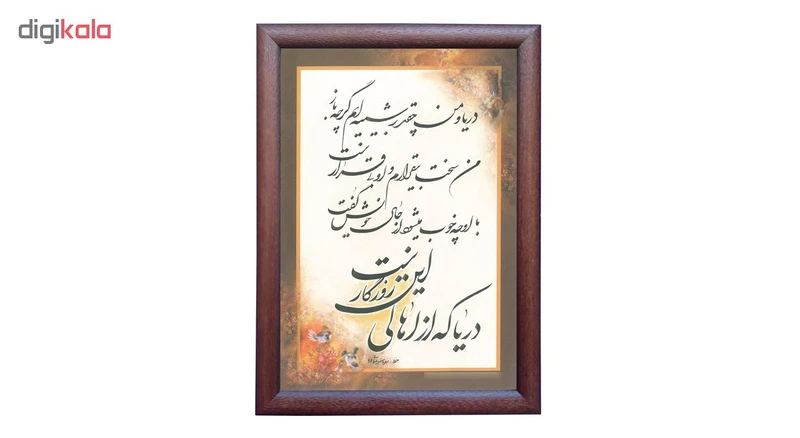 digikala
دریا و من چقدر شبیه ایم گرچه باز
من سخت بیقرارم و او بی قرار نیست
با او چه خوب میشود از حال خویش گفت
دریا که از اهالی این روزگار نیست